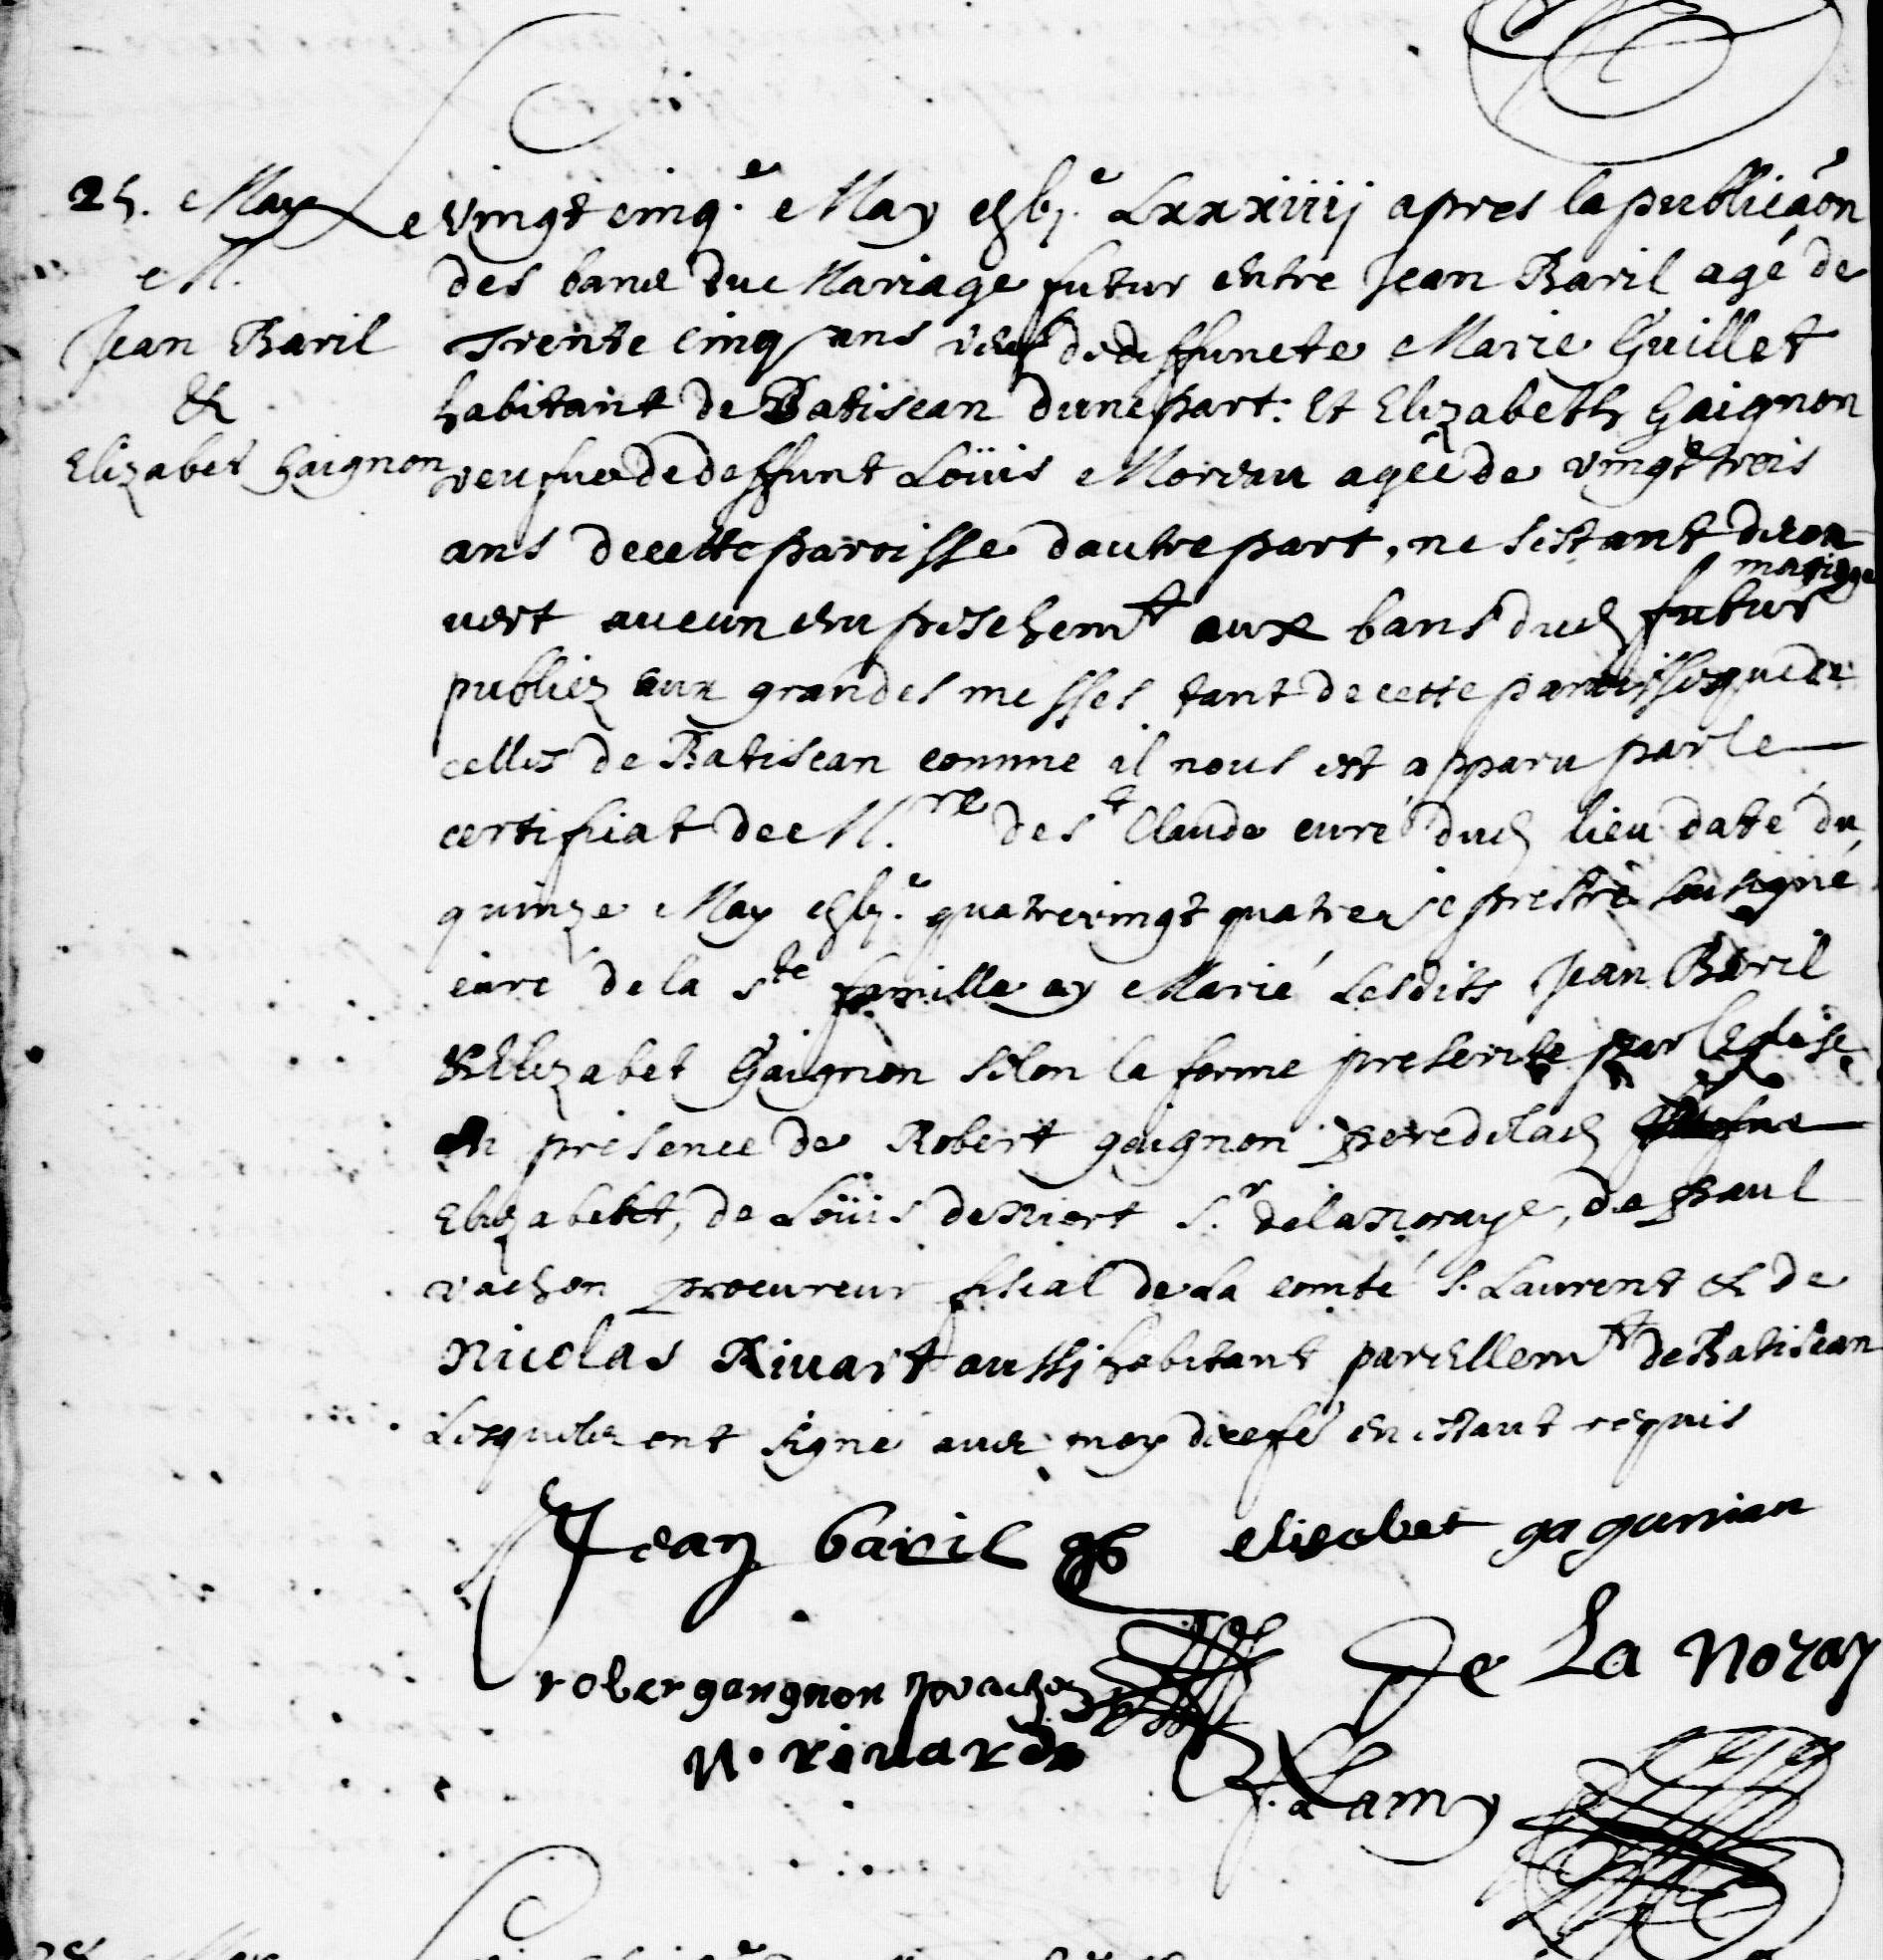 25. May
M.
Jean Baril
&
Elizabet Gaignon
Le vingt cinq.e May Lxxxiiij apres la publicaon
des bans du Mariage futur entre Jean Baril agé de
Trente cinq ans veuf de deffuncte Marie Guillet
habitant de Batiscan dune part: Et Elizabeth Gaignon
veufue de deffunt Loüis Moreau agée de vingt trois
ans de cette paroisse dautre part, ne sestant decou
mariage
uert aucun empeschemt aux bans dud futur
publiez aux grandes messes tant de cette paroisse que de
celles de Batiscan comme il nous est apparu par le
certificat de M.re de St Claude curé dud lieu daté du
quinze May quatre vingt quatre je prestre sousigné
curé de la Ste famille ay Marié Lesdits Jean Baril
& Elizabet Gaignon selon la forme prescrite par l'Eglise
en presence de Robert gaignon pere de lad
Elizabet, de Loüis de Niort Sr de la Noraye, de Paul
vachon procureur fiscal de La comté S. Laurent & de
Nicolas Rivart aussi habitant pareillemt de Batiscan
Lesquels ont signé avec moy de ce en estant requis
Jean baril elisabet gagunian
rober gangnon pvachon De La Noray
N. rivard
f. Lamy